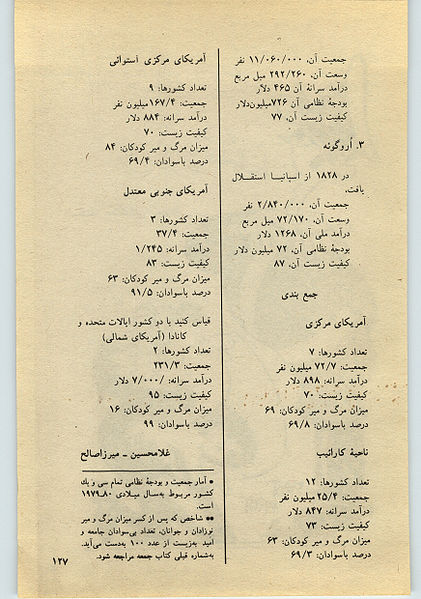 جمعیت آن، ۱۱/۰۶۰/۰۰۰ نفر
وسعت آن، ۲۹۲/۲۶۰ میل مربع
درآمد سرانهٔ آن ۴۶۵ دلار
بودجهٔ نظامی آن ۷۲۶میلیون‌دلار
کیفیت زیست آن، ۷۷
۳. اُروگوئه
در ۱۸۲۸ از اسپانیا استقلال
یافت.
جمعیت آن، ۲/۸۴۰/۰۰۰ نفر
وسعت آن، ۷۲/۱۷۰ میل مربع
درآمد ملی آن، ۱۲۶۸ دلار
بودجهٔ نظامی آن، ۷۲ میلیون دلار
کیفیت زیست آن، ۸۷
جمع بندی
آمریکای مرکزی
تعداد کشورها: ۷
جمعیت: ۷۲/۷ میلیون نفر
درآمد سرانه: ۸۹۸ دلار
کیفیت زیست: ۷۰
میزان مرگ و میر کودکان: ۶۹
درصد باسوادان: ۶۹/۸
ناحیهٔ کارائیب
تعداد کشورها: ۱۲
جمعیت: ۲۵/۴ میلیون نفر
درآمد سرانه: ۸۴۷ دلار
کیفیت زیست: ۷۳
میزان مرگ و میر کودکان: ۶۳
درصد باسوادان: ۶۹/۳
آمریکای مرکزی استوائی
تعداد کشورها: ۹
جمعیت: ۱۶۷/۴میلیون نفر
درآمد سرانه: ۸۸۴ دلار
کیفیت زیست: ۷۰
میزان مرگ و میر کودکان: ۸۴
درصد باسوادان: ۶۹/۴
آمریکای جنوبی معتدل
تعداد کشورها: ۳
جمعیت: ۳۷/۴
درآمد سرانه: ۱/۲۴۵
کیفیت زیست: ۸۳
میزان مرگ و میر کودکان: ۶۳
درصد باسوادان: ۹۱/۵
قیاس کنید با دو کشور ایالات متحده و
کانادا (آمریکای شمالی)
تعداد کشورها: ۲
جمعیت: ۲۳۱/۳
درآمد سرانه: /۷/۰۰۰ دلار
کیفیت زیست: ۹۵
میزان مرگ و میر کودکان: ۱۶
درصد باسوادان: ۹۹
غلامحسین ـ میرزاصالح
* آمار جمعیت و بودجهٔ نظامی تمام سی و یك
کشور مربوط به‌سال میلادی ۸۰ـ۱۹۷۹
است.
** شاخص که پس از کسر میزان مرگ و میر
نوزادان و جوانان، تعداد بی‌سوادان جامعه و
امید به‌زیست از عدد ۱۰۰ به‌دست می‌آید.
به‌شماره قبلی کتاب جمعه مراجعه شود.
۱۲۷